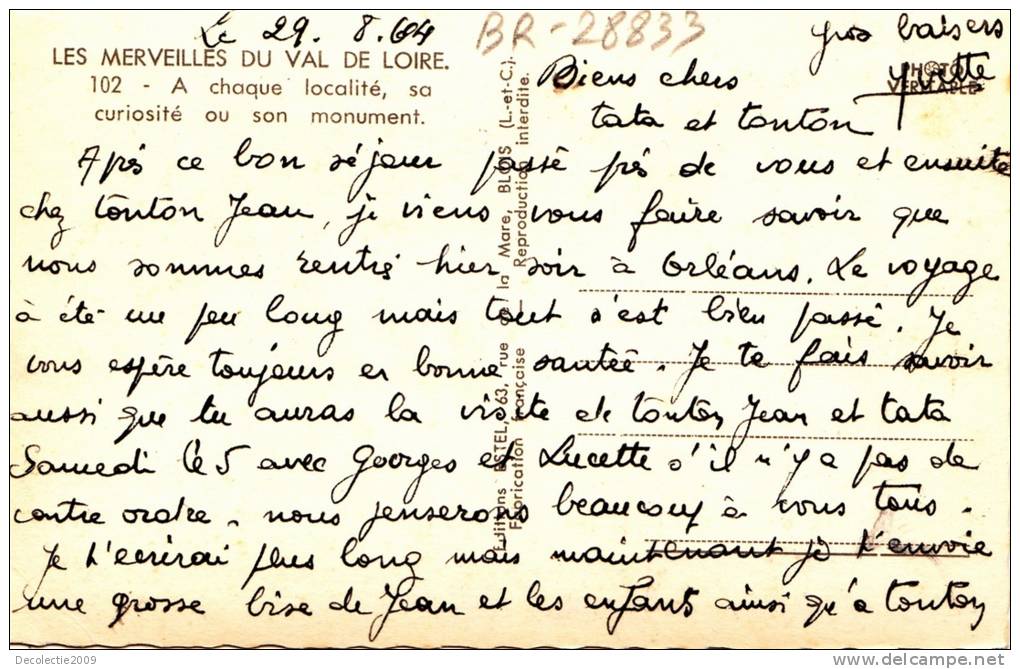 Le 29. 8. 64
BR-28833
gros baisers
Yvette
LES MERVEILLES DU VAL DE LOIRE.
102 - A chaque localité, sa
curiosité ou son monument.
PHOTO
VERITABLE
Editions ESTEL, 63, rue de la Mare, BLOIS (L.-et-C.).
Fabrication française Reproduction interdite.
Biens chers
tata et tonton
Après ce bon séjour passé près de vous et ensuite
chez tonton Jean, je viens vous faire savoir que
nous sommes rentré hier soir à Orléans. Le voyage
à été un peu long mais tout s'est bien passé. Je
vous espère toujours en bonne santée. Je te fais savoir
aussi que tu auras la visite de tonton Jean et tata
Samedi le 5 avec Georges et Lucette s'il n'y a pas de
contre ordre. nous penserons beaucoup à vous tous.
Je t'ecrirai plus long mais maintenant je t'envoie
une grosse bise de Jean et les enfants ainsi qu'a tonton
Decolectie2009
www.delcampe.net